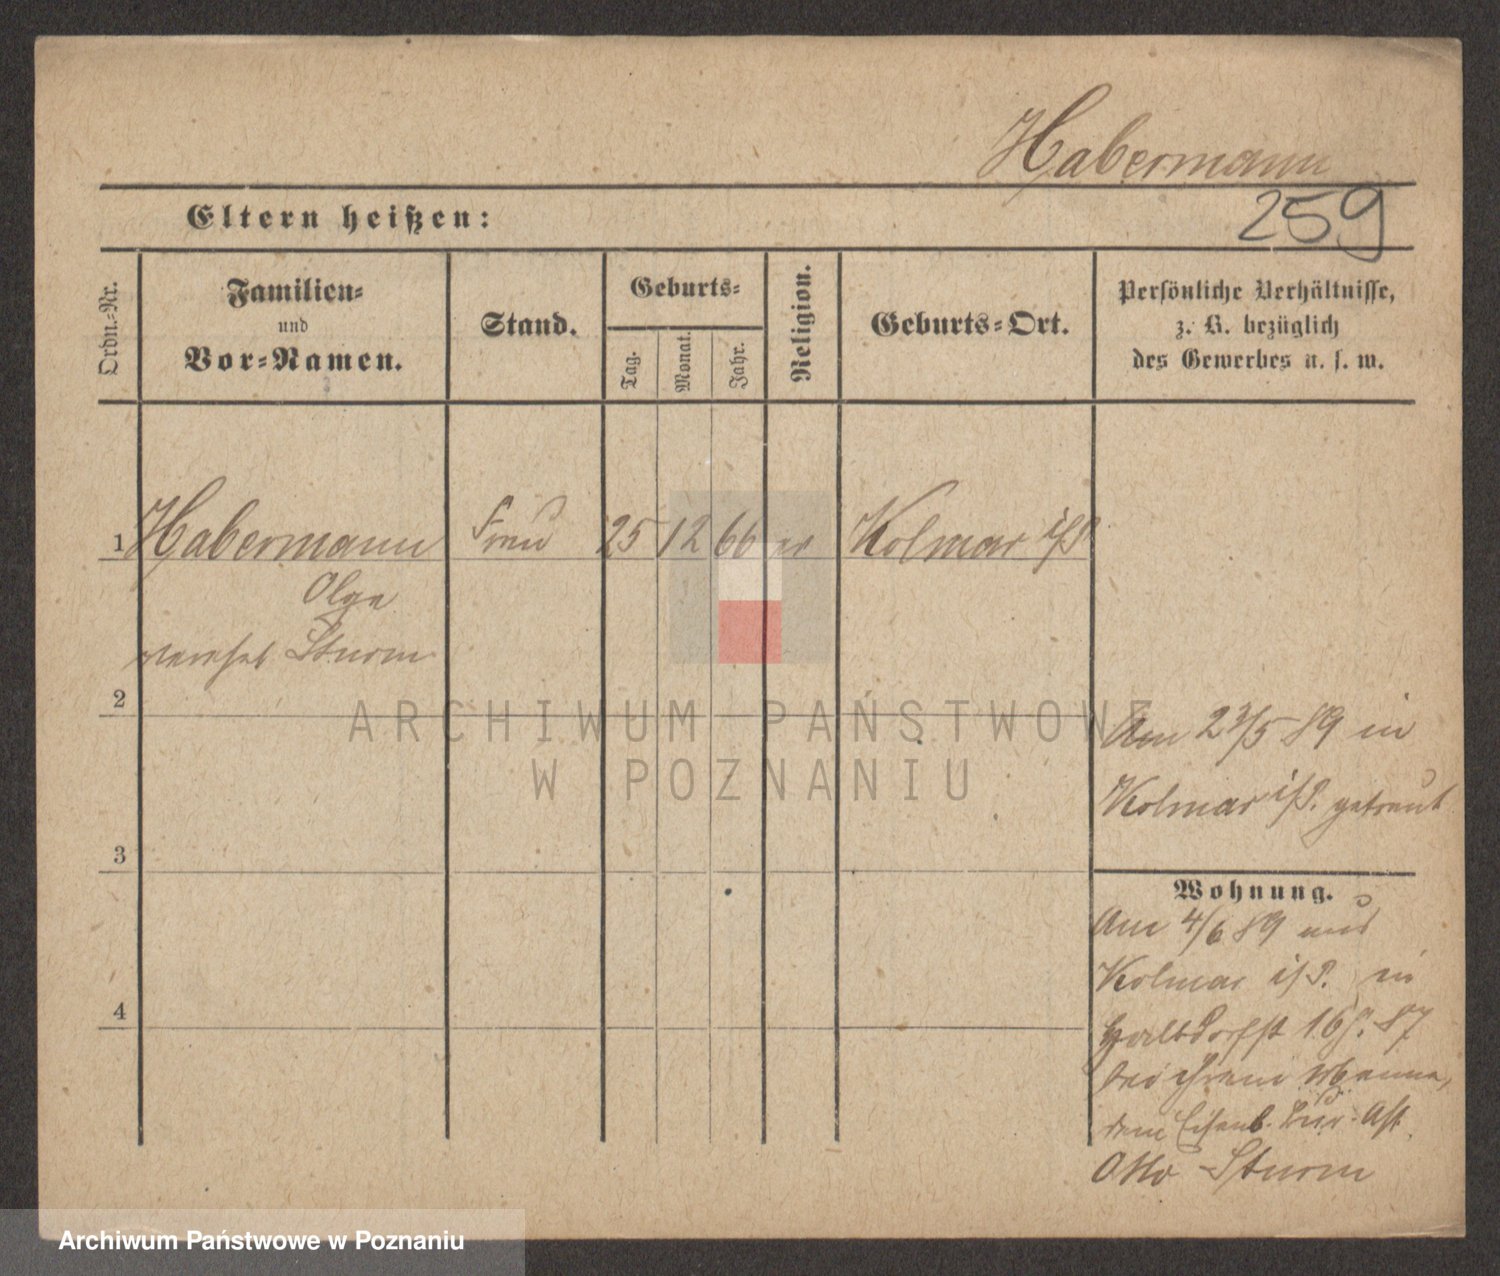 Habermann
259
Eltern heißen:
Ordn.-Nr.
Familien-
und
Vor-Namen.
Stand.
Geburts-
Tag.
Monat.
Jahr.
Religion.
Geburts-Ort.
Persönliche Verhältnisse,
z. B. bezüglich
des Gewerbes u. s. w.
1 Habermann Frau 25 12 66 ev Kolmar i/P.
Olga
verehel Sturm
2
Am 23/5 89 in
Kolmar i/P. getraut
3
Wohnung.
Am 4/6 89 aus
Kolmar i/P. in
16 87
bei ihrem Manne,
dem Eisenb. Bür. Asst.
Otto Sturm
4
ARCHIWUM PAŃSTWOWE
W POZNANIU
Archiwum Państwowe w Poznaniu